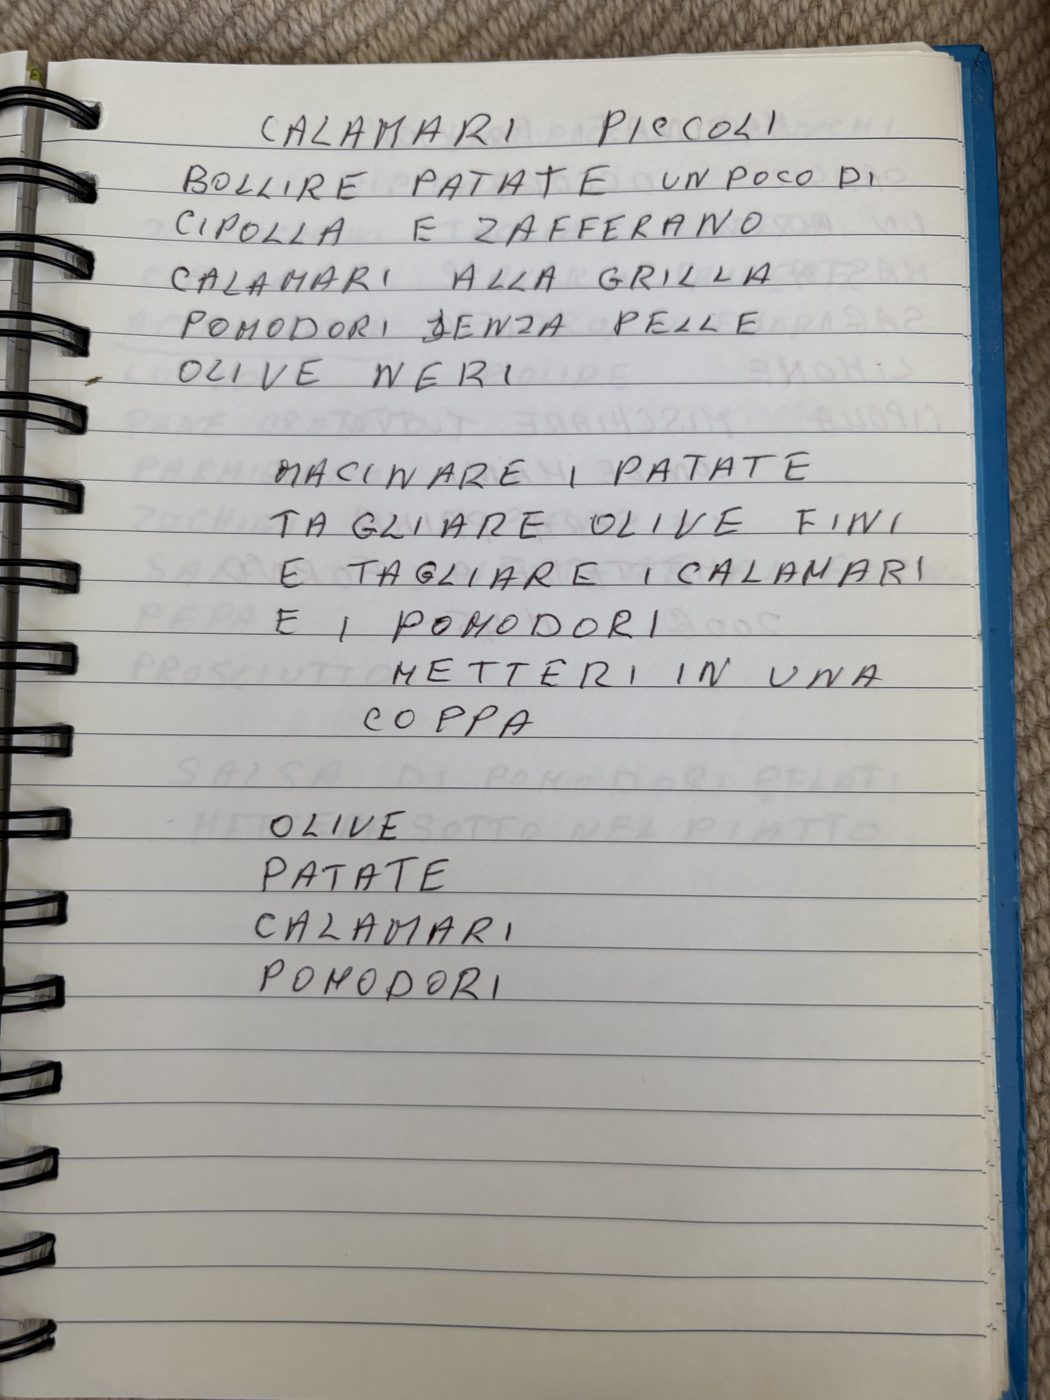 CALAMARI PICCOLI
BOLLIRE PATATE UN POCO DI
CIPOLLA E ZAFFERANO
CALAMARI ALLA GRILLA
POMODORI SENZA PELLE
OLIVE NERI
MACINARE I PATATE
TAGLIARE OLIVE FINI
E TAGLIARE I CALAMARI
E I POMODORI
METTERI IN UNA
COPPA
OLIVE
PATATE
CALAMARI
POMODORI